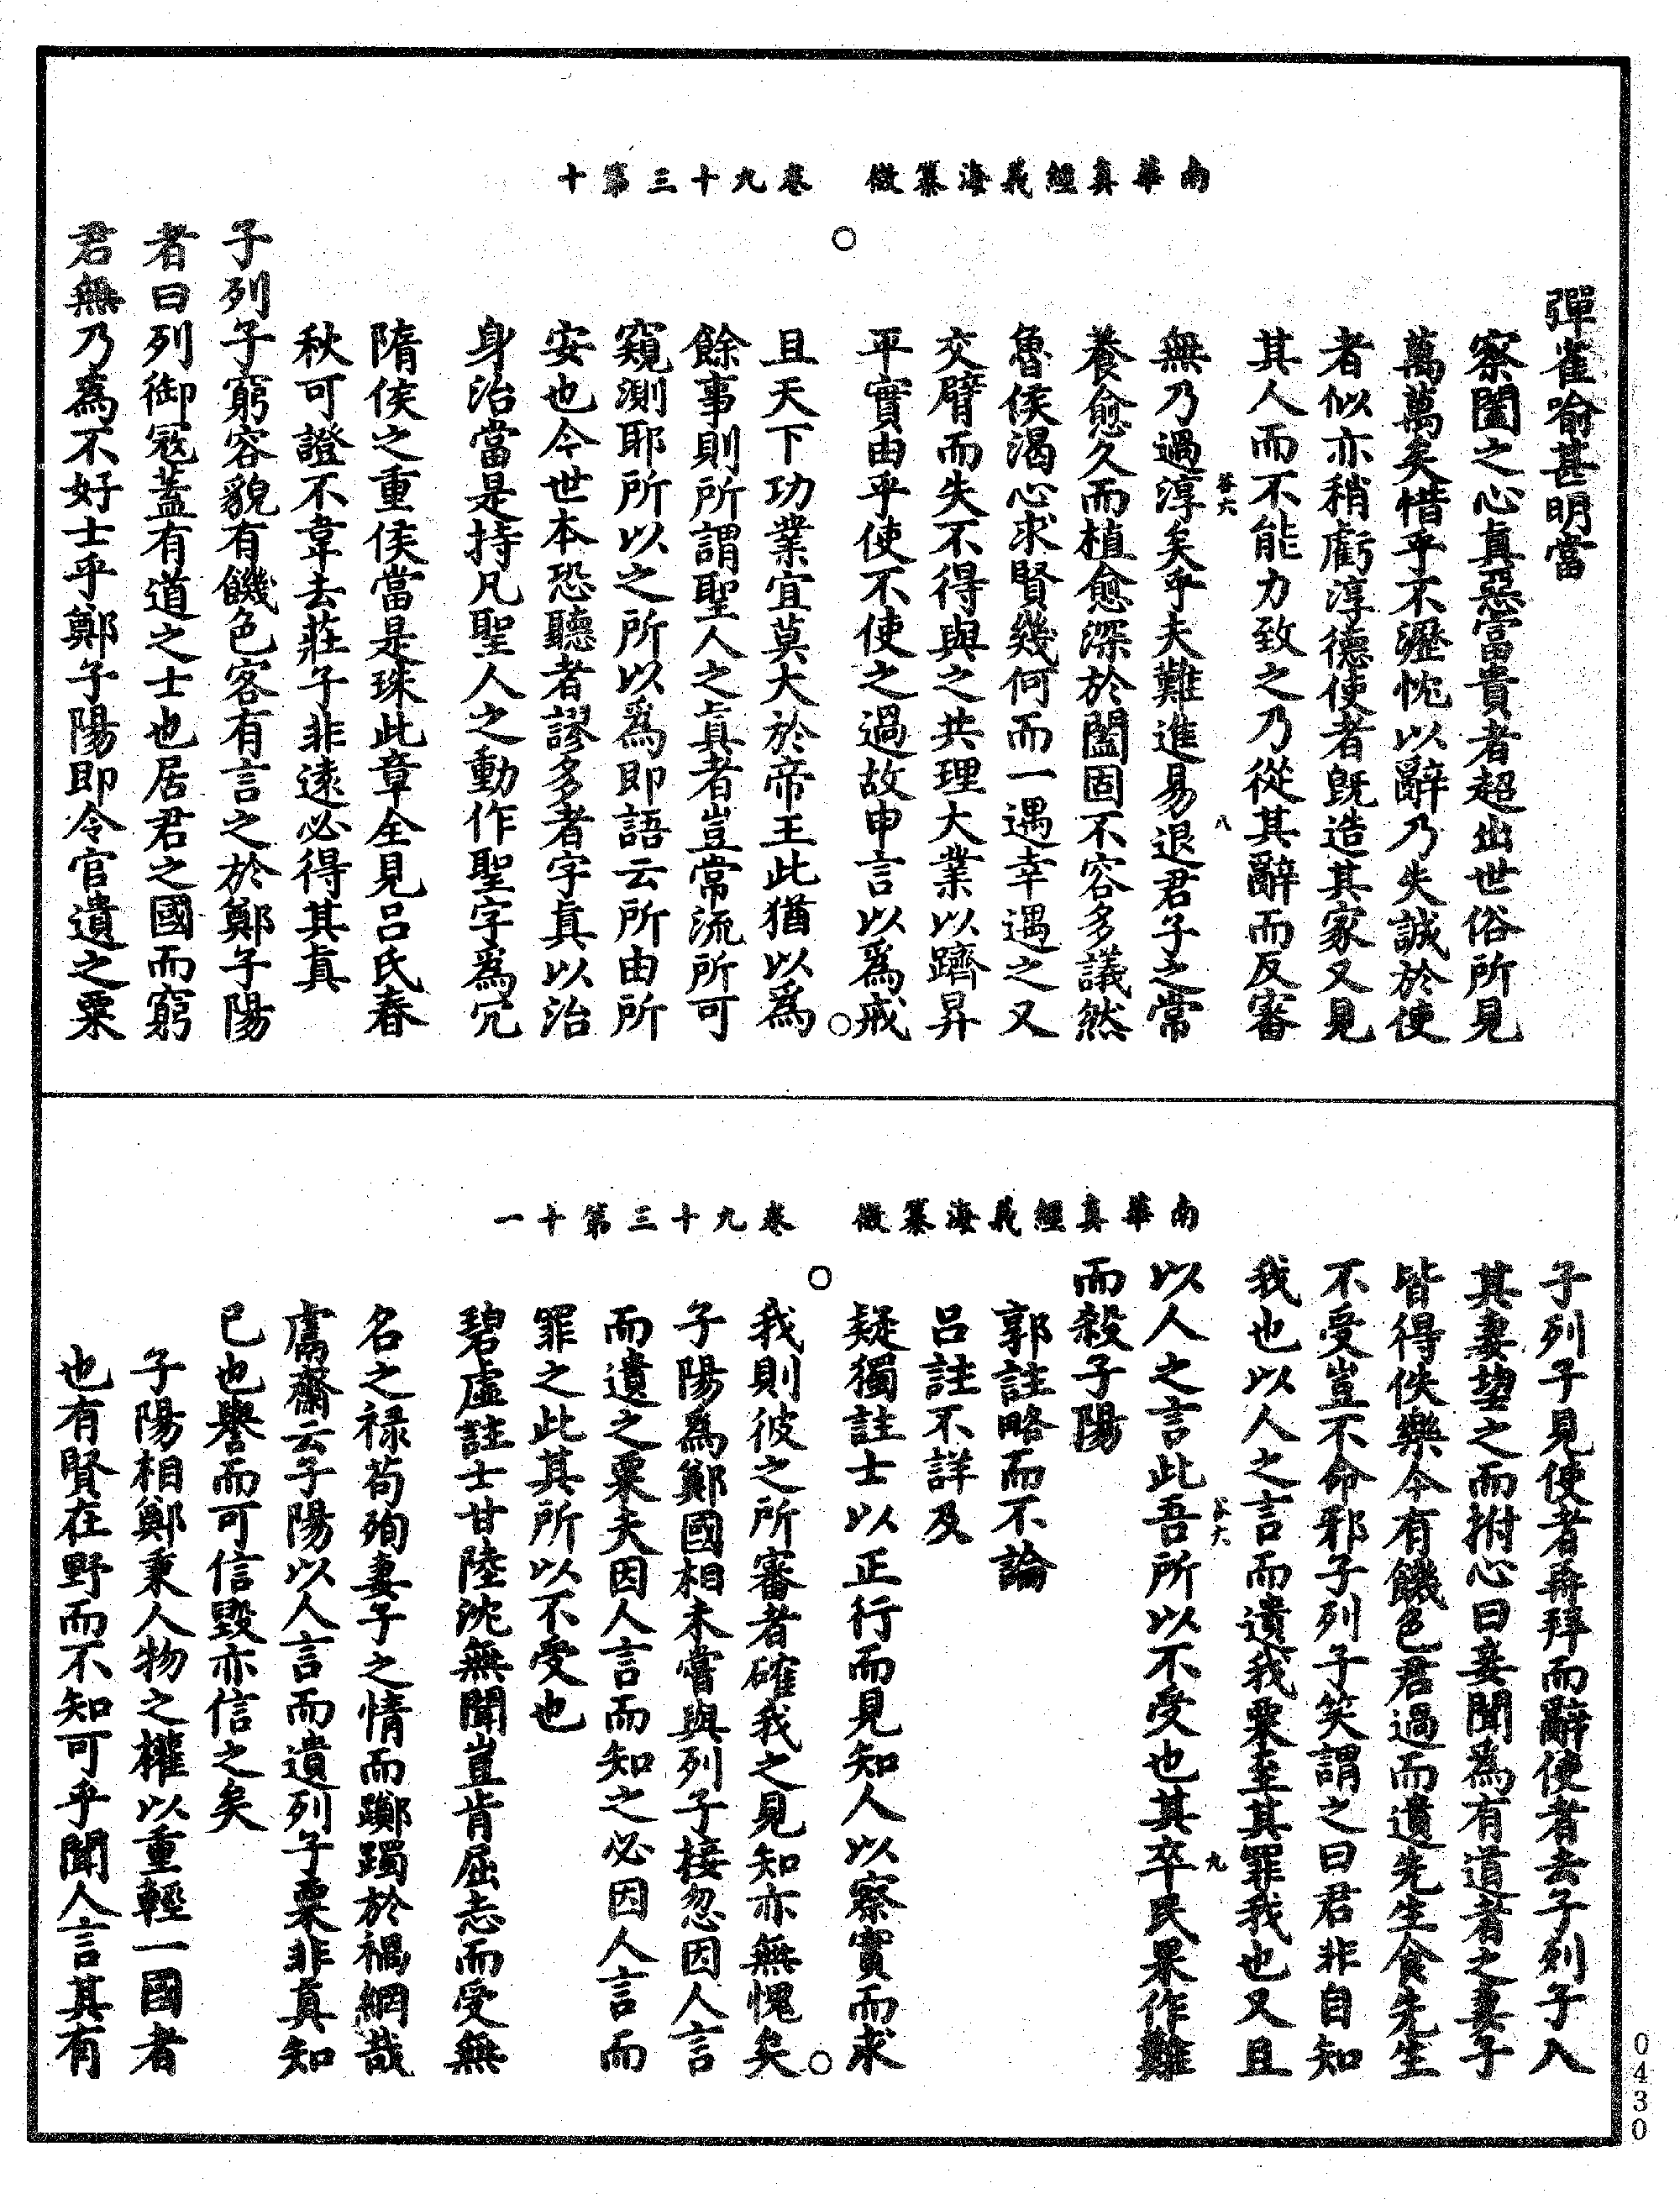 南華真經義海纂微　卷九十三第十
彈雀喻甚明當
察闔之心真惡富貴者超出世俗所見
萬萬矣惜乎不瀝忱以辭乃失誠於使
者似亦稍虧淳德使者既造其家又見
其人而不能力致之乃從其辭而反審
無乃過淳矣乎夫難進易退君子之常
養愈久而植愈深於闔固不容多議然
魯侯渴心求賢幾何而一遇幸遇之又
交臂而失不得與之共理大業以躋昇
平實由乎使不使之過故申言以為戒
且天下功業宜莫大於帝王此猶以為
餘事則所謂聖人之真者豈常流所可
窺測耶所以之所以為即語云所由所
安也今世本恐聽者謬多者字真以治
身治當是持凡聖人之動作聖字為冗
隋侯之重侯當是珠此章全見呂氏春
秋可證不韋去莊子非遠必得其真
子列子窮容貌有饑色客有言之於鄭子陽
者曰列御寇蓋有道之士也居君之國而窮
君無乃為不好士乎鄭子陽即令官遺之粟
南華真經義海纂微　卷九十三第十一
子列子見使者再拜而辭使者去子列子入
其妻望之而拊心曰妾聞為有道者之妻子
皆得佚樂今有饑色君過而遺先生食先生
不受豈不命邪子列子笑謂之曰君非自知
我也以人之言而遺我粟至其罪我也又且
以人之言此吾所以不受也其卒民果作難
而殺子陽
郭註略而不論
呂註不詳及
疑獨註士以正行而見知人以察實而求
我則彼之所審者確我之見知亦無愧矣
子陽為鄭國相未嘗與列子接忽因人言
而遺之粟夫因人言而知之必因人言而
罪之此其所以不受也
碧虛註士甘陸沈無聞豈肯屈志而受無
名之祿苟殉妻子之情而躑躅於禍網哉
鬳齋云子陽以人言而遺列子粟非真知
已也譽而可信毀亦信之矣
子陽相鄭秉人物之權以重輕一國者
也有賢在野而不知可乎聞人言其有
0430